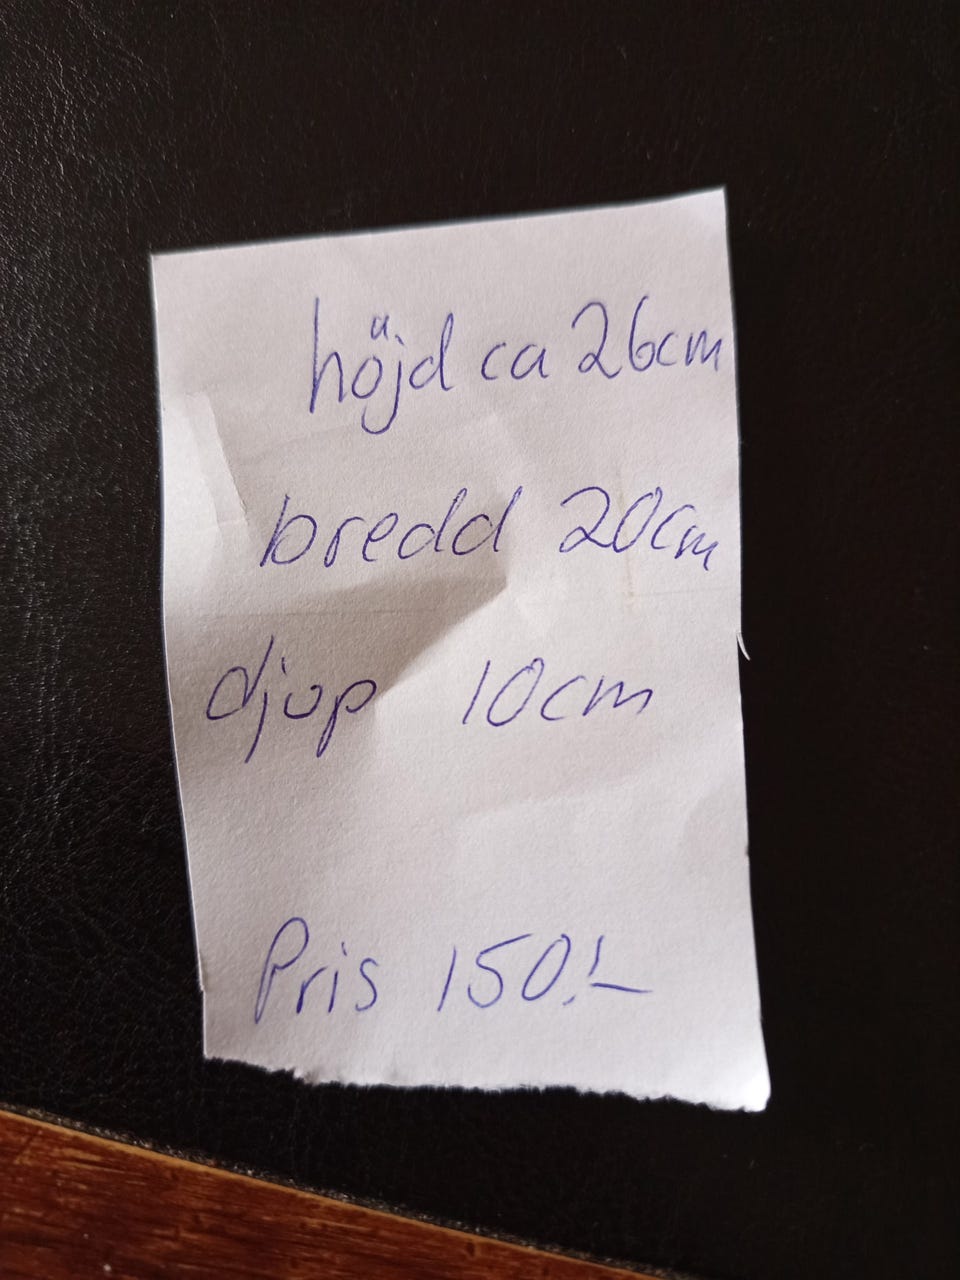 höjd ca 26cm
bredd 20cm
djup 10cm
Pris 150:-